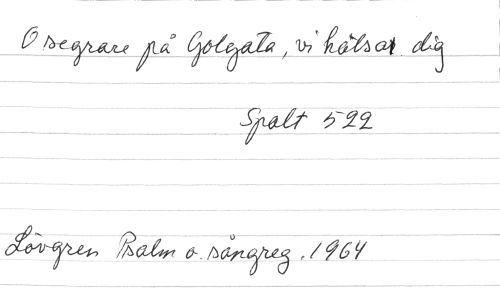 O segrare på Golgata, vi hälsar dig
Spalt 522
Lövgren Psalm o. sångreg. 1964